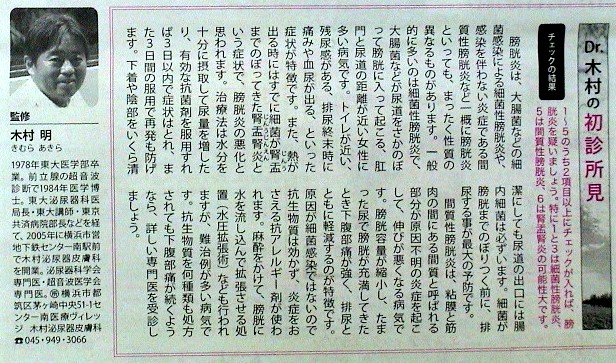 Dr.木村の初診所見
チェックの結果
1～5のうち2項目以上にチェックが入れば、膀
胱炎を疑いましょう。特に1と3は細菌性膀胱炎、
5は間質性膀胱炎、6は腎盂腎炎の可能性大です。
膀胱炎は、大腸菌などの細
菌感染による細菌性膀胱炎や、
感染を伴わない炎症である間
質性膀胱炎など一概に膀胱炎
といっても、まったく性質の
異なるものがあります。一般
的に多いのは細菌性膀胱炎で、
大腸菌などが尿道をさかのぼ
って膀胱に入って起こる、肛
門と尿道の距離が近い女性に
多い病気です。トイレが近い、
残尿感がある、排尿終末時に
痛みや血尿が出る、といった
症状が特徴です。また、熱が
出る時にはすでに細菌が腎盂
までのぼってきた腎盂腎炎と
いう症状で、膀胱炎の悪化と
思われます。治療法は水分を
十分に摂取して尿量を増した
り、有効な抗菌剤を服用すれ
ば3日以内で症状はとれ、ま
た3日間の服用で再発も防げ
ます。下着や陰部をいくら清
潔にしても尿道の出口には腸
内細菌は必ずいます。細菌が
膀胱までのぼりつく前に、排
尿する事が最大の予防です。
間質性膀胱炎は、粘膜と筋
肉の間にある間質と呼ばれる
部分が原因不明の炎症を起こ
して、伸びが悪くなる病気で
す。膀胱容量が縮小し、たま
った尿で膀胱が充満してきた
とき下腹部痛が強く、排尿と
ともに軽減するのが特徴です。
原因が細菌感染ではないので
抗生物質は効かず、炎症をお
さえる抗アレルギー剤が使わ
れます。麻酔をかけて、膀胱に
水を流し込んで拡張させる処
置（水圧拡張術）なども行われ
ますが、難治療が多い病気で
す。抗生物質を何種類も処方
されても下腹部痛が続くよう
なら、詳しい専門医を受診し
ましょう。
監修
木村 明
きむら あきら
1978年東大医学部卒
業。前立腺の超音波
診断で1984年医学博
士。東大泌尿器科医
局長・東大講師・東京
共済病院部長などを経
て、2005年に横浜市営
地下鉄センター南駅前
で木村泌尿器皮膚科
を開業。泌尿器科学会
専門医・超音波医学会
専門医。㊟横浜市都
筑区茅ヶ崎中央51-1セ
ンター南医療ヴィレッ
ジ 木村泌尿器皮膚科
☎045・949・3066